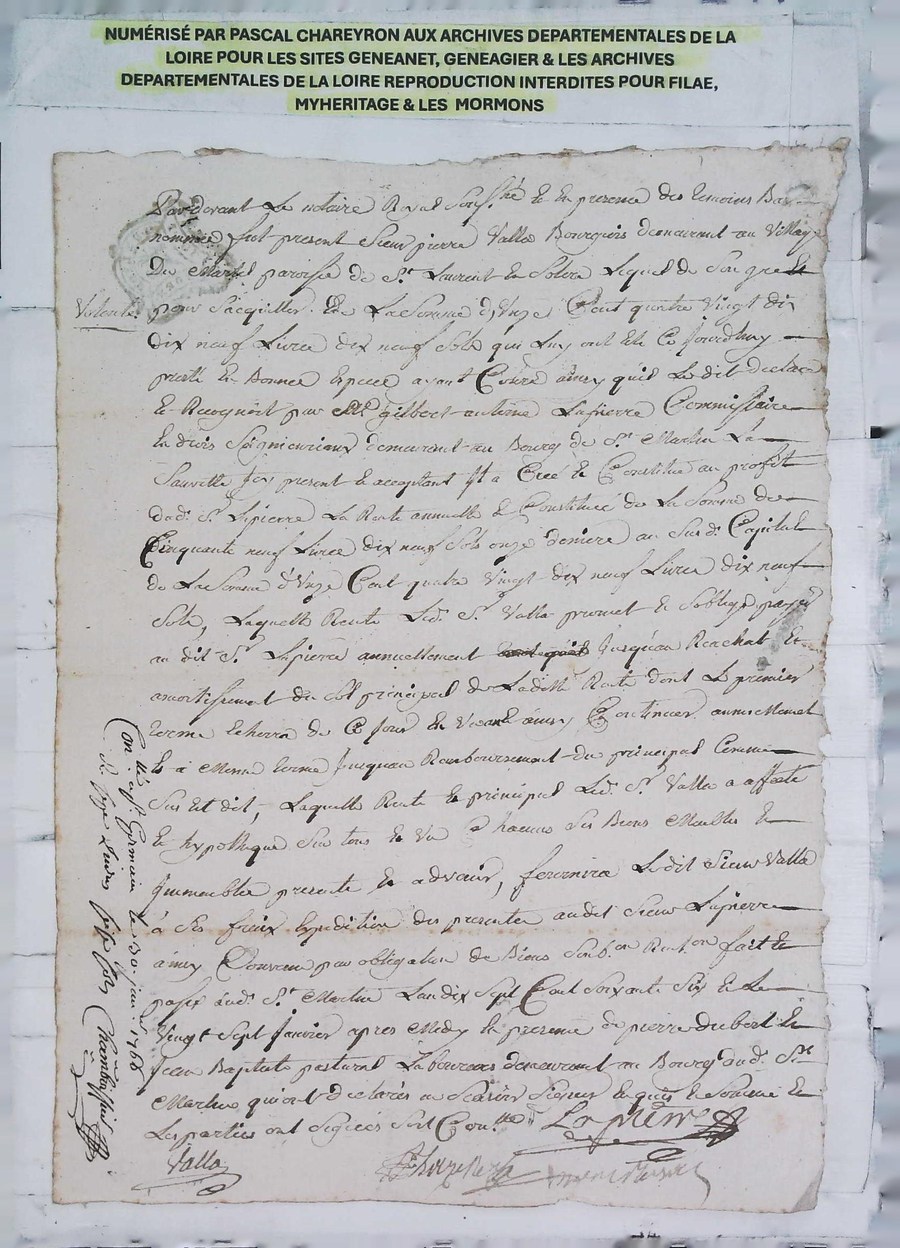 NUMÉRISÉ PAR PASCAL CHAREYRON AUX ARCHIVES DEPARTEMENTALES DE LA
LOIRE POUR LES SITES GENEANET, GENEAGIER & LES ARCHIVES
DEPARTEMENTALES DE LA LOIRE REPRODUCTION INTERDITES POUR FILAE,
MYHERITAGE & LES MORMONS
Par devant Le notaire Royal Souss.né et En presence des temoins Bas
nommés fut present Sieur pierre Valla Bourgeois demeurant au Village
Du paroisse de St Laurent En Solore Lequel de Son gre
pour S'acquitter De La Somme d'Unze Cent quatre Vingt dix
dix neuf Livres dix neuf Sols qui Luy ont eté Ce Jourdhuy
presté En Bonnes Especes ayant Cours ainsy quil Le dit declare
Et Reconnoit par Me gilbert antoine Lapierre Commissaire
En droits Seigneuriaux demeurant au Bourg de St Martin La
Sauveté Icy present Et acceptant Il a Créé Et Constitué au profit
dud. Sr Lapierre La Rente annuelle Et Constituée de La Somme de
Cinquante neuf Livres dix neuf Sols onze deniers au Sus d. Capital
de La Somme d'Unze Cent quatre Vingt dix neuf Livres dix neuf
Sols, Laquelle Rente Led. Sr Valla promet Et S'oblige payer
au dit Sr Lapierre annuellement Jusquau Rachat Et
amortissement du Sol principal de Laditte Rente dont Le premier
terme Echerra de Ce Jour En Un an ainsy Continuer annuellement
Et à Meme terme Jusquau Remboursement du principal Comme
Sus Est dit, Laquelle Rente Et principal Led. Sr Valla a affecté
Et hypothequé Sur tous Et Un Chacuns Ses Biens Meubles Et
Immeubles presents Et advenir, fournira Ledit Sieur Valla
à Ses fraix Expedition des presentes audit Sieur Lapierre
ainsy Convenu par obligation de Biens Soub.on Ren.on fait Et
passé aud. St Martin Lan dix Sept Cent Soixante Six Et Le
Vingt Sept Janvier apres Midy En presence de pierre dubost Et
Jean Baptiste pastural Laboureurs demeurant au Bourg dud. St
Martin qui ont declarés ne Scavoir Signer Enquis Et Sommé Et
Les parties ont Signées Soit Con.llé
Lapierre
Valla
Con.llé a St Germain Le 30 janv. 1766
R. Unze Livres